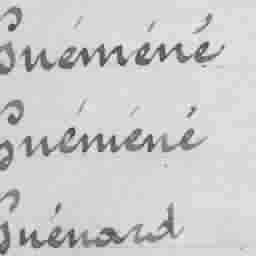 Guéméné
Guéméné
Guénard